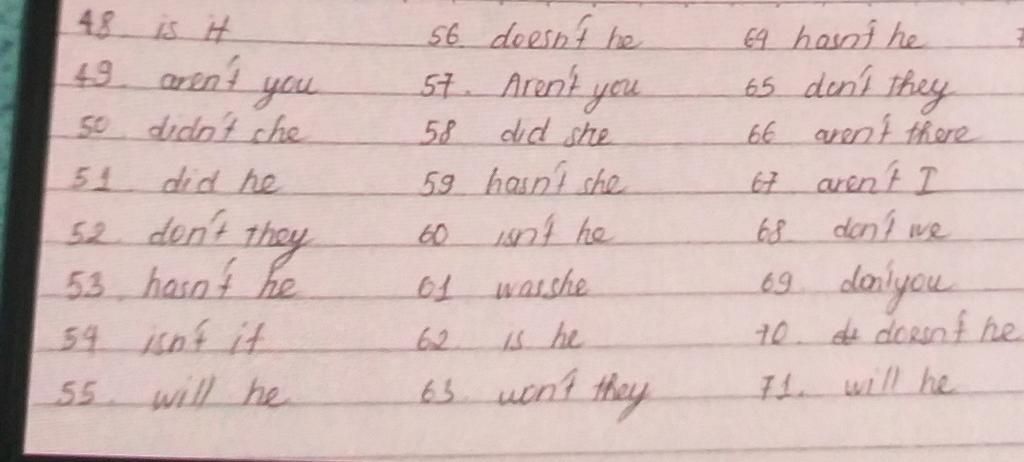 48 is it
49 aren't you
50 didn't she
51 did he
52 don't they
53. hasn't he
54 isn't it
55. will he
56. doesn't he
57. Aren't you
58 did she
59 hasn't she
60 isn't he
61 wasshe
62 is he
63 won't they
64 hasn't he
65 don't they
66 aren't there
67 aren't I
68 don't we
69 don'tyou
70. doesn't he
71. will he